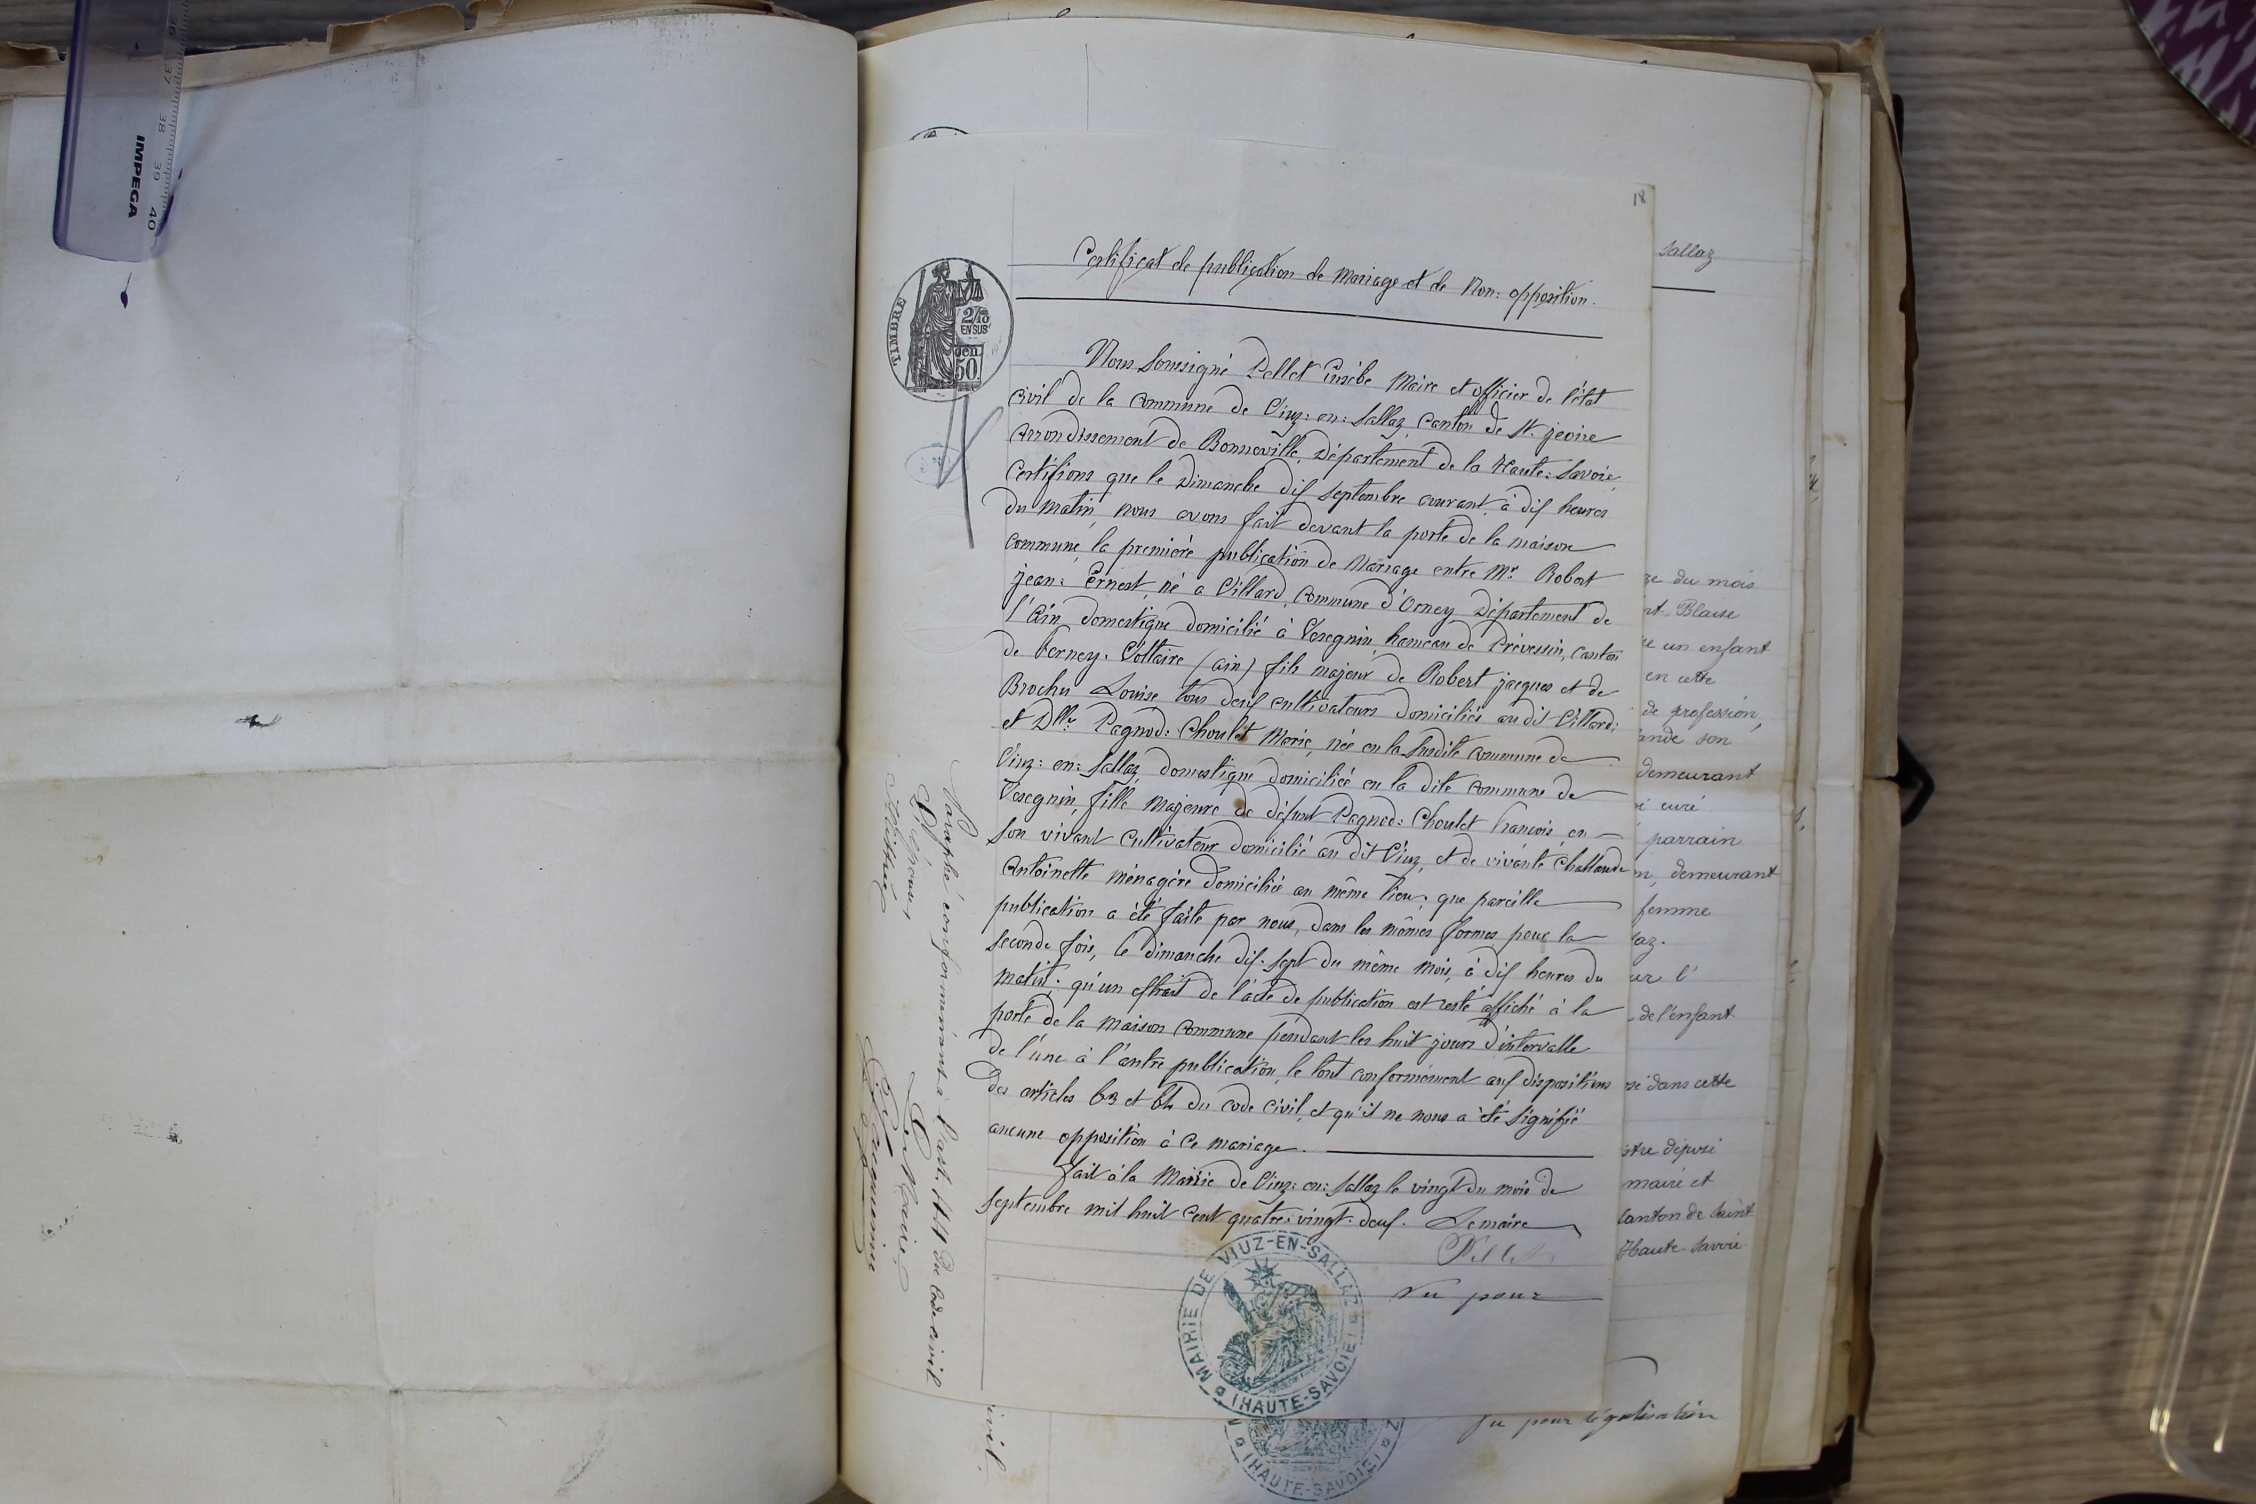 IMPEGA
37
38
39
40
18
Certificat de publication de Mariage et de Non: opposition.
TIMBRE
2/10
EN SUS
50
Nous Soussigné Pellet Eusèbe Maire et officier de l'état
civil de la commune de Viuz: en: Sallaz canton de St. jeoire
arrondissement de Bonneville, Département de la Haute: Savoie,
Certifions que le Dimanche dix septembre courant, à dix heures
du matin, nous avons fait devant la porte de la maison
commune, la première publication de Mariage entre Mr. Robert
jean: Ernest, né a Villard, commune d'Orney Département de
l'Ain, domestique domicilié à Vesegnin, hameau de Prévessin, canton
de Ferney. Voltaire (ain) fils majeur de Robert jacques et de
Brochu Louise tous deux cultivateurs domiciliés au dit Villard;
et Dlle. Pagnod: Choulet Marie, née en la susdite commune de
Viuz: en: Sallaz, domestique domiciliée en la dite commune de
Vesegnin, fille majeure de défunt Pagnod: Choulet francois, en
son vivant cultivateur domicilié au dit Viuz, et de vivante Challande
antoinette ménagère domiciliée au même lieu; que pareille
publication a été faite par nous, dans les mêmes formes pour la
seconde fois, le dimanche dix. sept du même mois, à dix heures du
matin; qu'un extrait de l'acte de publication est resté affiché à la
porte de la maison commune pendant les huit jours d'intervalle
de l'une à l'autre publication, le tout conformément aux dispositions
des articles 63 et 64 du code civil, et qu'il ne nous a été signifié
aucune opposition à ce mariage.
fait à la Mairie de Viuz: en: Sallaz le vingt du mois de
septembre mil huit cent quatre: vingt: deux. Le maire
Pellet
Vu pour
MAIRIE DE VIUZ-EN-SALLAZ
(HAUTE-SAVOIE)
Paraphé conformément à l'art. 44 du Code civil
L'épouse,
illettrée
Le Maire,
Sallaz
du mois
Blaise
un enfant
en cette
de profession,
son
demeurant
curé
parrain
demeurant
femme
l'
de l'enfant
dans cette
maire et
canton de Saint
Haute Savoie
ivil.
Vu pour légalisation
(HAUTE-SAVOIE)